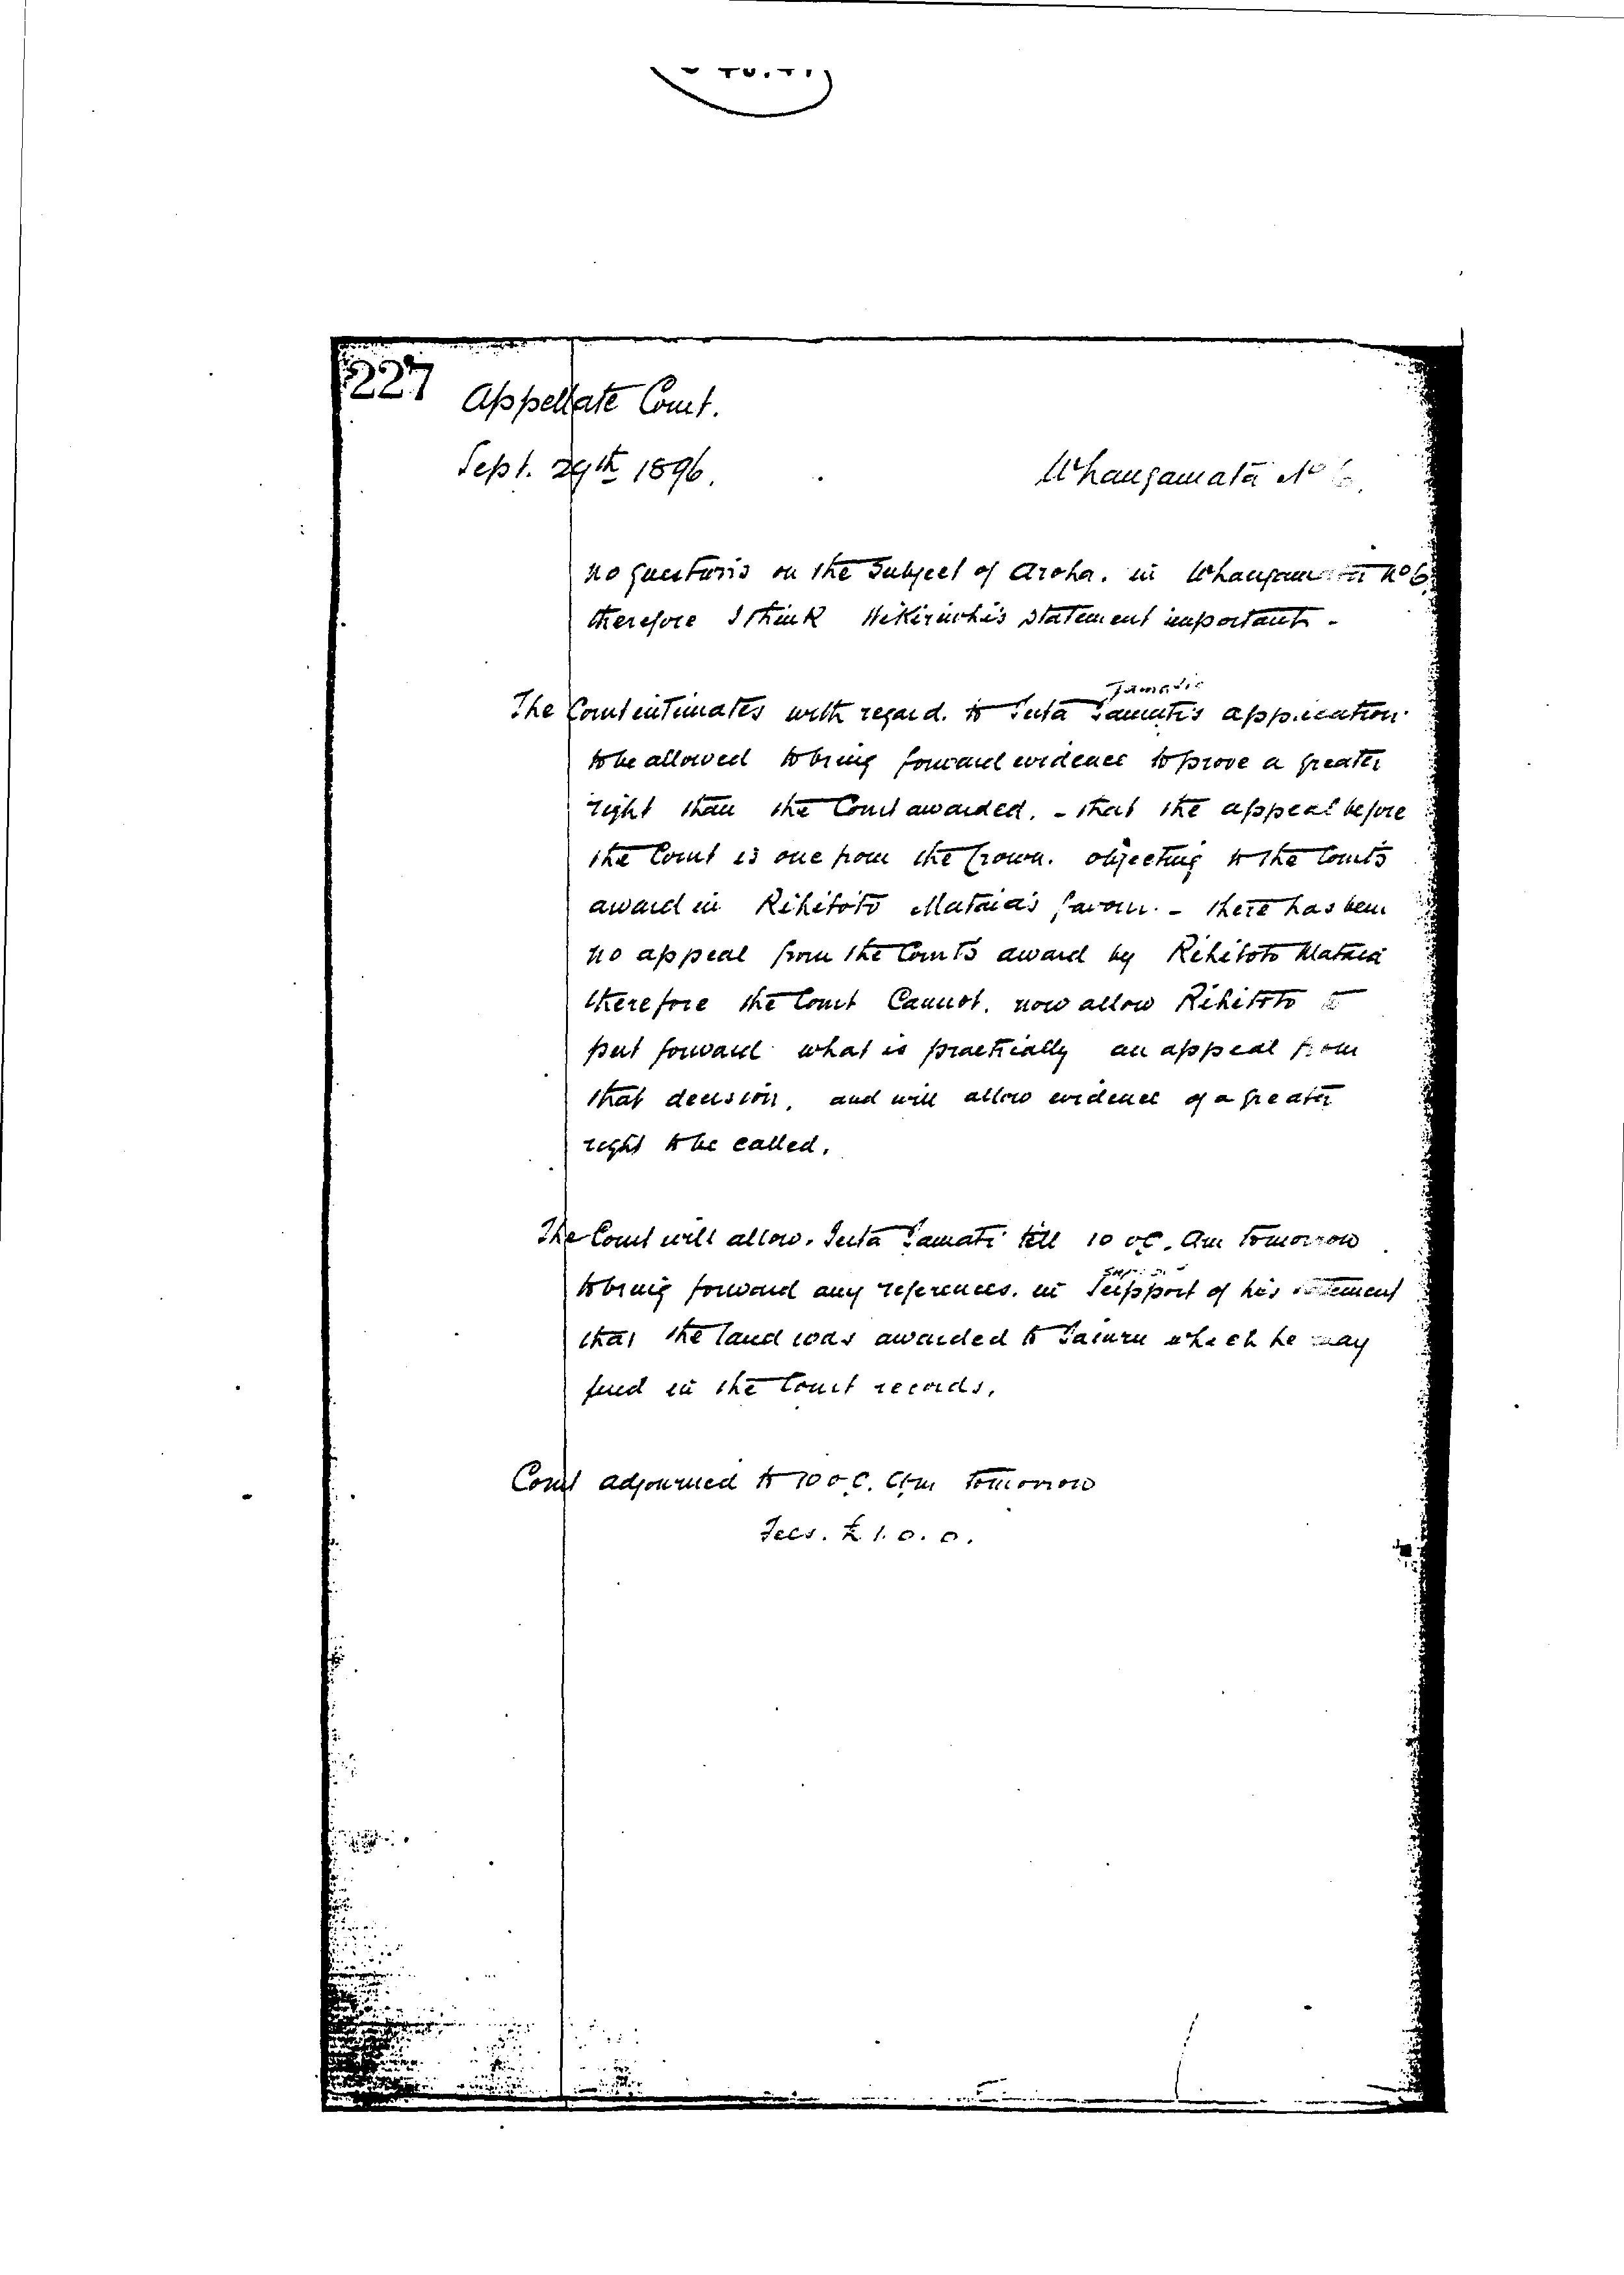 227
Appellate Court.
Sept. 29th 1896.
Whangamata No 6.
no questions on the Subject of Aroha. in Whangamata No 6
therefore I think Hikiriwhi's statement important -
Tamati's
The Court intimates with regard. to Tuta Tamati's application
to be allowed to bring forward evidence to prove a greater
right than the Court awarded. - that the appeal before
the Court is one from the Crown. objecting to the Court's
award in Rihitoto Mataia's favour. - there has been
no appeal from the Court's award by Rihitoto Mataia
therefore the Court Cannot. now allow Rihitoto to
put forward what is practically an appeal from
that decision, and will allow evidence of a greater
right to be called.
The Court will allow. Tuta Tamati till 10 oC. Am tomorrow
support
to bring forward any references. in Support of his statement
that the land was awarded to which he may
find in the Court records.
Court adjourned to 10 oC. Am tomorrow
Fees. £1.0.0.